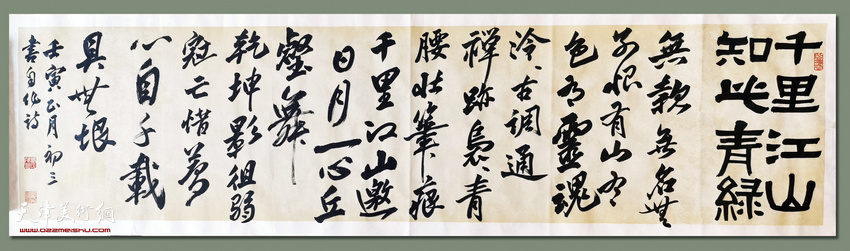 千里江山
知此青緑
無款無名無
别恨有山有
色有靈魂
泠泠古調通
禪跡裊裊青
腰壯筆痕
千里江山邀
日月一心丘
壑舞
乾坤影徂弱
冠亡惜
心自千載
具無垠
壬寅正月初三
書自作詩
天津美術網
www.022meishu.com